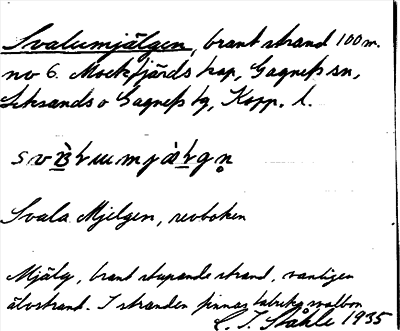 Svalumjälgen, brant strand 100 m.
nv 6. Mockfjärds kap, Gagnefs sn,
Leksands o Gagnefs tg, Kopp. l.
Svala Mjelgen, revboken
Mjälg, brant stupande strand, vanligen
älvstrand. I stranden finnas talrika svalbon
L. I. Ståhle 1935